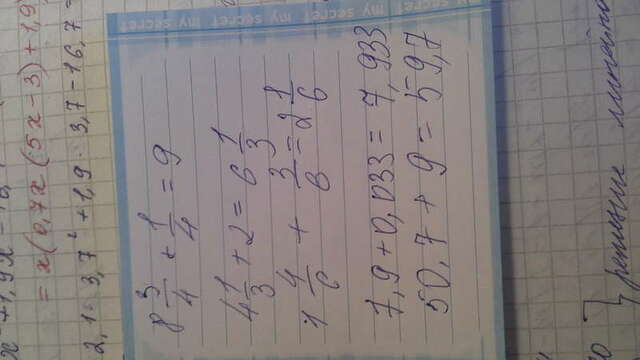 my secret my secret my secret
8 3/4 + 1/4 = 9
4 1/3 + 2 = 6 1/3
1 4/6 + 3/6 = 2 1/6
7,9 + 0,033 = 7,933
50,7 + 9 = 59,7
= x(0,7x(5x-3)+1,9
2,1 · 3,7² + 1,9 · 3,7 - 16,7 =
решение